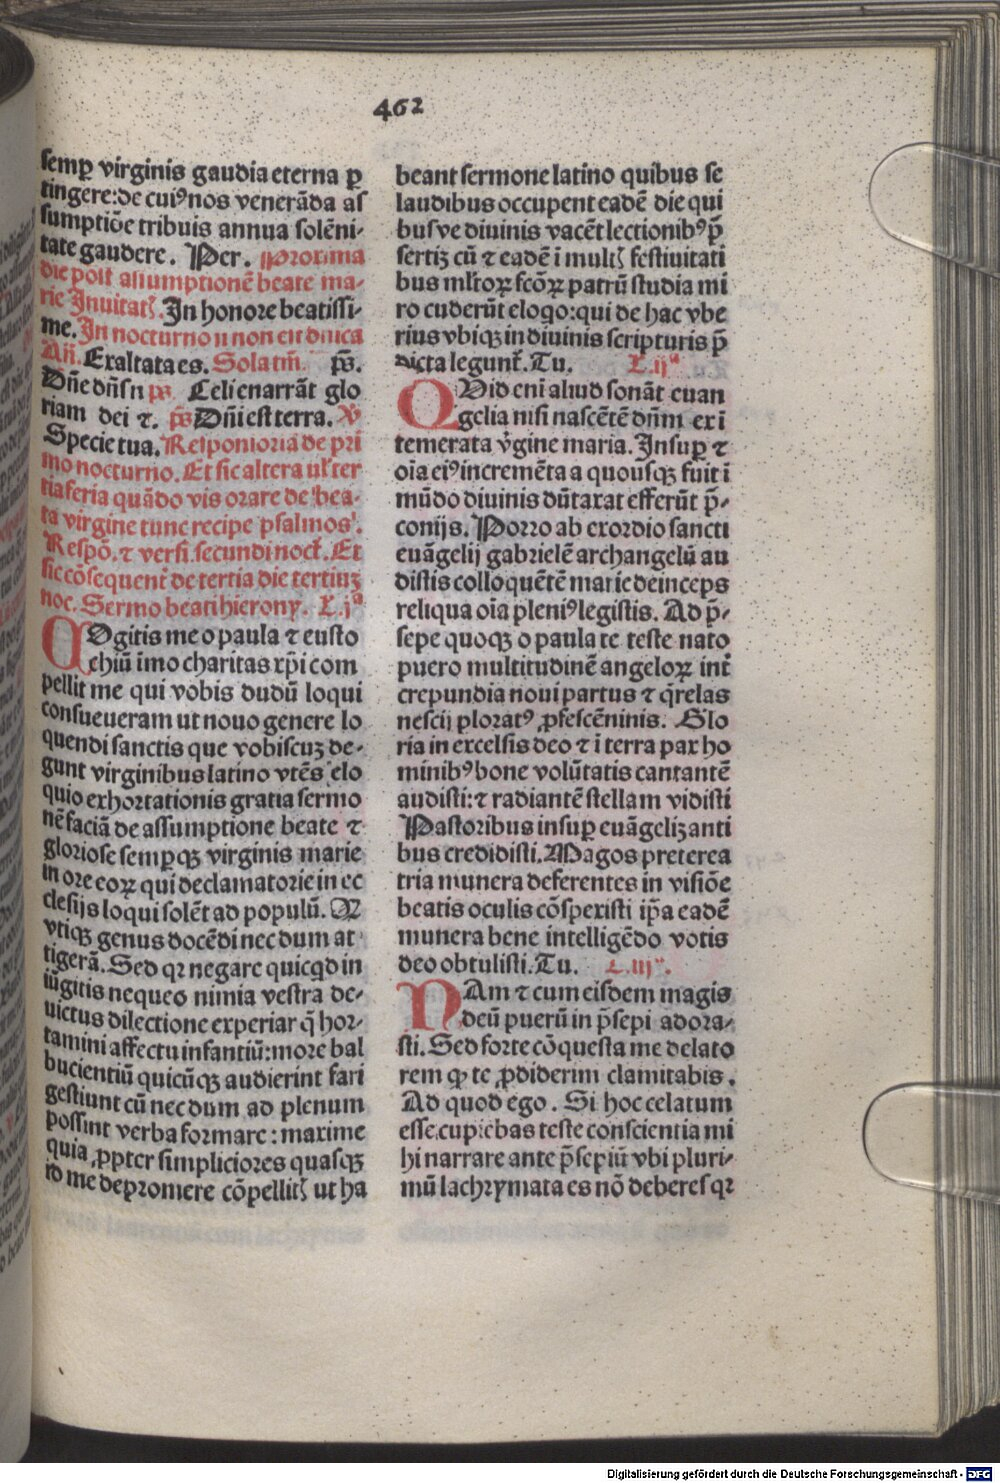 462
semꝑ virginis gaudia eterna ꝑ
tingere: de cuiꝰ nos venerāda as
sumptiōe tribuis annua solēni-
tate gaudere. Per. Proxima
die post assumptionē beate ma-
rie Inuitatꝭ. In honore beatissi-
me. In nocturno
Añ. Exaltata es. Sola tm̄. ps̄.
Dñe dñs n ps Celi enarrāt glo
riam dei ⁊. ps̄ Dñi est terra. ℣
Specie tua. Responsoria de pri
mo nocturno. Et sic altera ul' ter
tia feria quādo vis orare de bea-
ta virgine tunc recipe psalmos.
Respō. ⁊ versi. secundi noct̄. Et
sic cōsequent̄ de tertia die tertiuꝫ
noc. Sermo beati hierony. L.jᵃ
COgitis me o paula ⁊ eusto
chiū īmo charitas xp̄i com
pellit me qui vobis dudū loqui
consueueram ut nouo genere lo
quendi sanctis que vobiscuꝫ de-
gunt virginibus latino vtēs elo
quio exhortationis gratia sermo
nē faciā de assumptione beate ⁊
gloriose semꝑqꝫ virginis marie
in ore eoꝝ qui declamatorie in ec
clesijs loqui solēt ad populū. Q
vtiqꝫ genus docēdi nec dum at
tigerā. Sed qꝛ negare quicqd in
iūgitis nequeo nimia vestra de-
uictus dilectione experiar q̄ hor-
tamini affectu infantiū: more bal
bucientiū quicūqꝫ audierint fari
gestiunt cū nec dum ad plenum
possint verba formare: maxime
quia ꝓpter simpliciores quasqꝫ
id me depromere cōpellitꝭ ut ha
beant sermone latino quibus se
laudibus occupent eadē die qui
busve diuinis vacēt lectionibꝰ p̄
sertiꝫ cū ⁊ eadē ī multꝭ festiuitati
bus ml'toꝝ scōꝝ patrū studia mi
ro cuderūt eloqo: qui de hac vbe
rius vbiqꝫ in diuinis scripturis p̄
dicta legunt̄. Tu. L.ijᵃ
QUid eni aliud sonāt euan
gelia nisi nascētē dñm ex ī
temerata v̄gine maria. Insuꝑ ⁊
oīa eiꝰ incremēta a quousqꝫ fuit ī
mūdo diuinis dūtaxat efferūt p̄-
conijs. Porro ab exordio sancti
euāgelij gabrielē archangelū au
distis colloquētē marie deinceps
reliqua oīa pleniꝰ legistis. Ad p̄-
sepe quoqꝫ o paula te teste nato
puero multitudinē angeloꝝ int̄
crepundia noui partus ⁊ q̄relas
nescij ploratꝰ ꝓfescēninis. Glo
ria in excelsis deo ⁊ ī terra pax ho
minibꝰ bone volūtatis cantantē
audisti: ⁊ radiantē stellam vidisti
Pastoribus insuꝑ euāgelizanti
bus credidisti. Magos preterea
tria munera deferentes in visiōe
beatis oculis cōspexisti ip̄a eadē
munera bene intelligēdo votis
deo obtulisti. Tu. L.iijᵃ.
NAm ⁊ cum eisdem magis
deū puerū in p̄sepi adora-
sti. Sed forte cōquesta me delato
rem qꝙ te ꝓdiderim clamitabis.
Ad quod ego. Si hoc celatum
esse cupiebas teste conscientia mi
hi narrare ante p̄sepiū vbi pluri-
mū lachrymata es nō deberes qꝛ
Digitalisierung gefördert durch die Deutsche Forschungsgemeinschaft - DFG